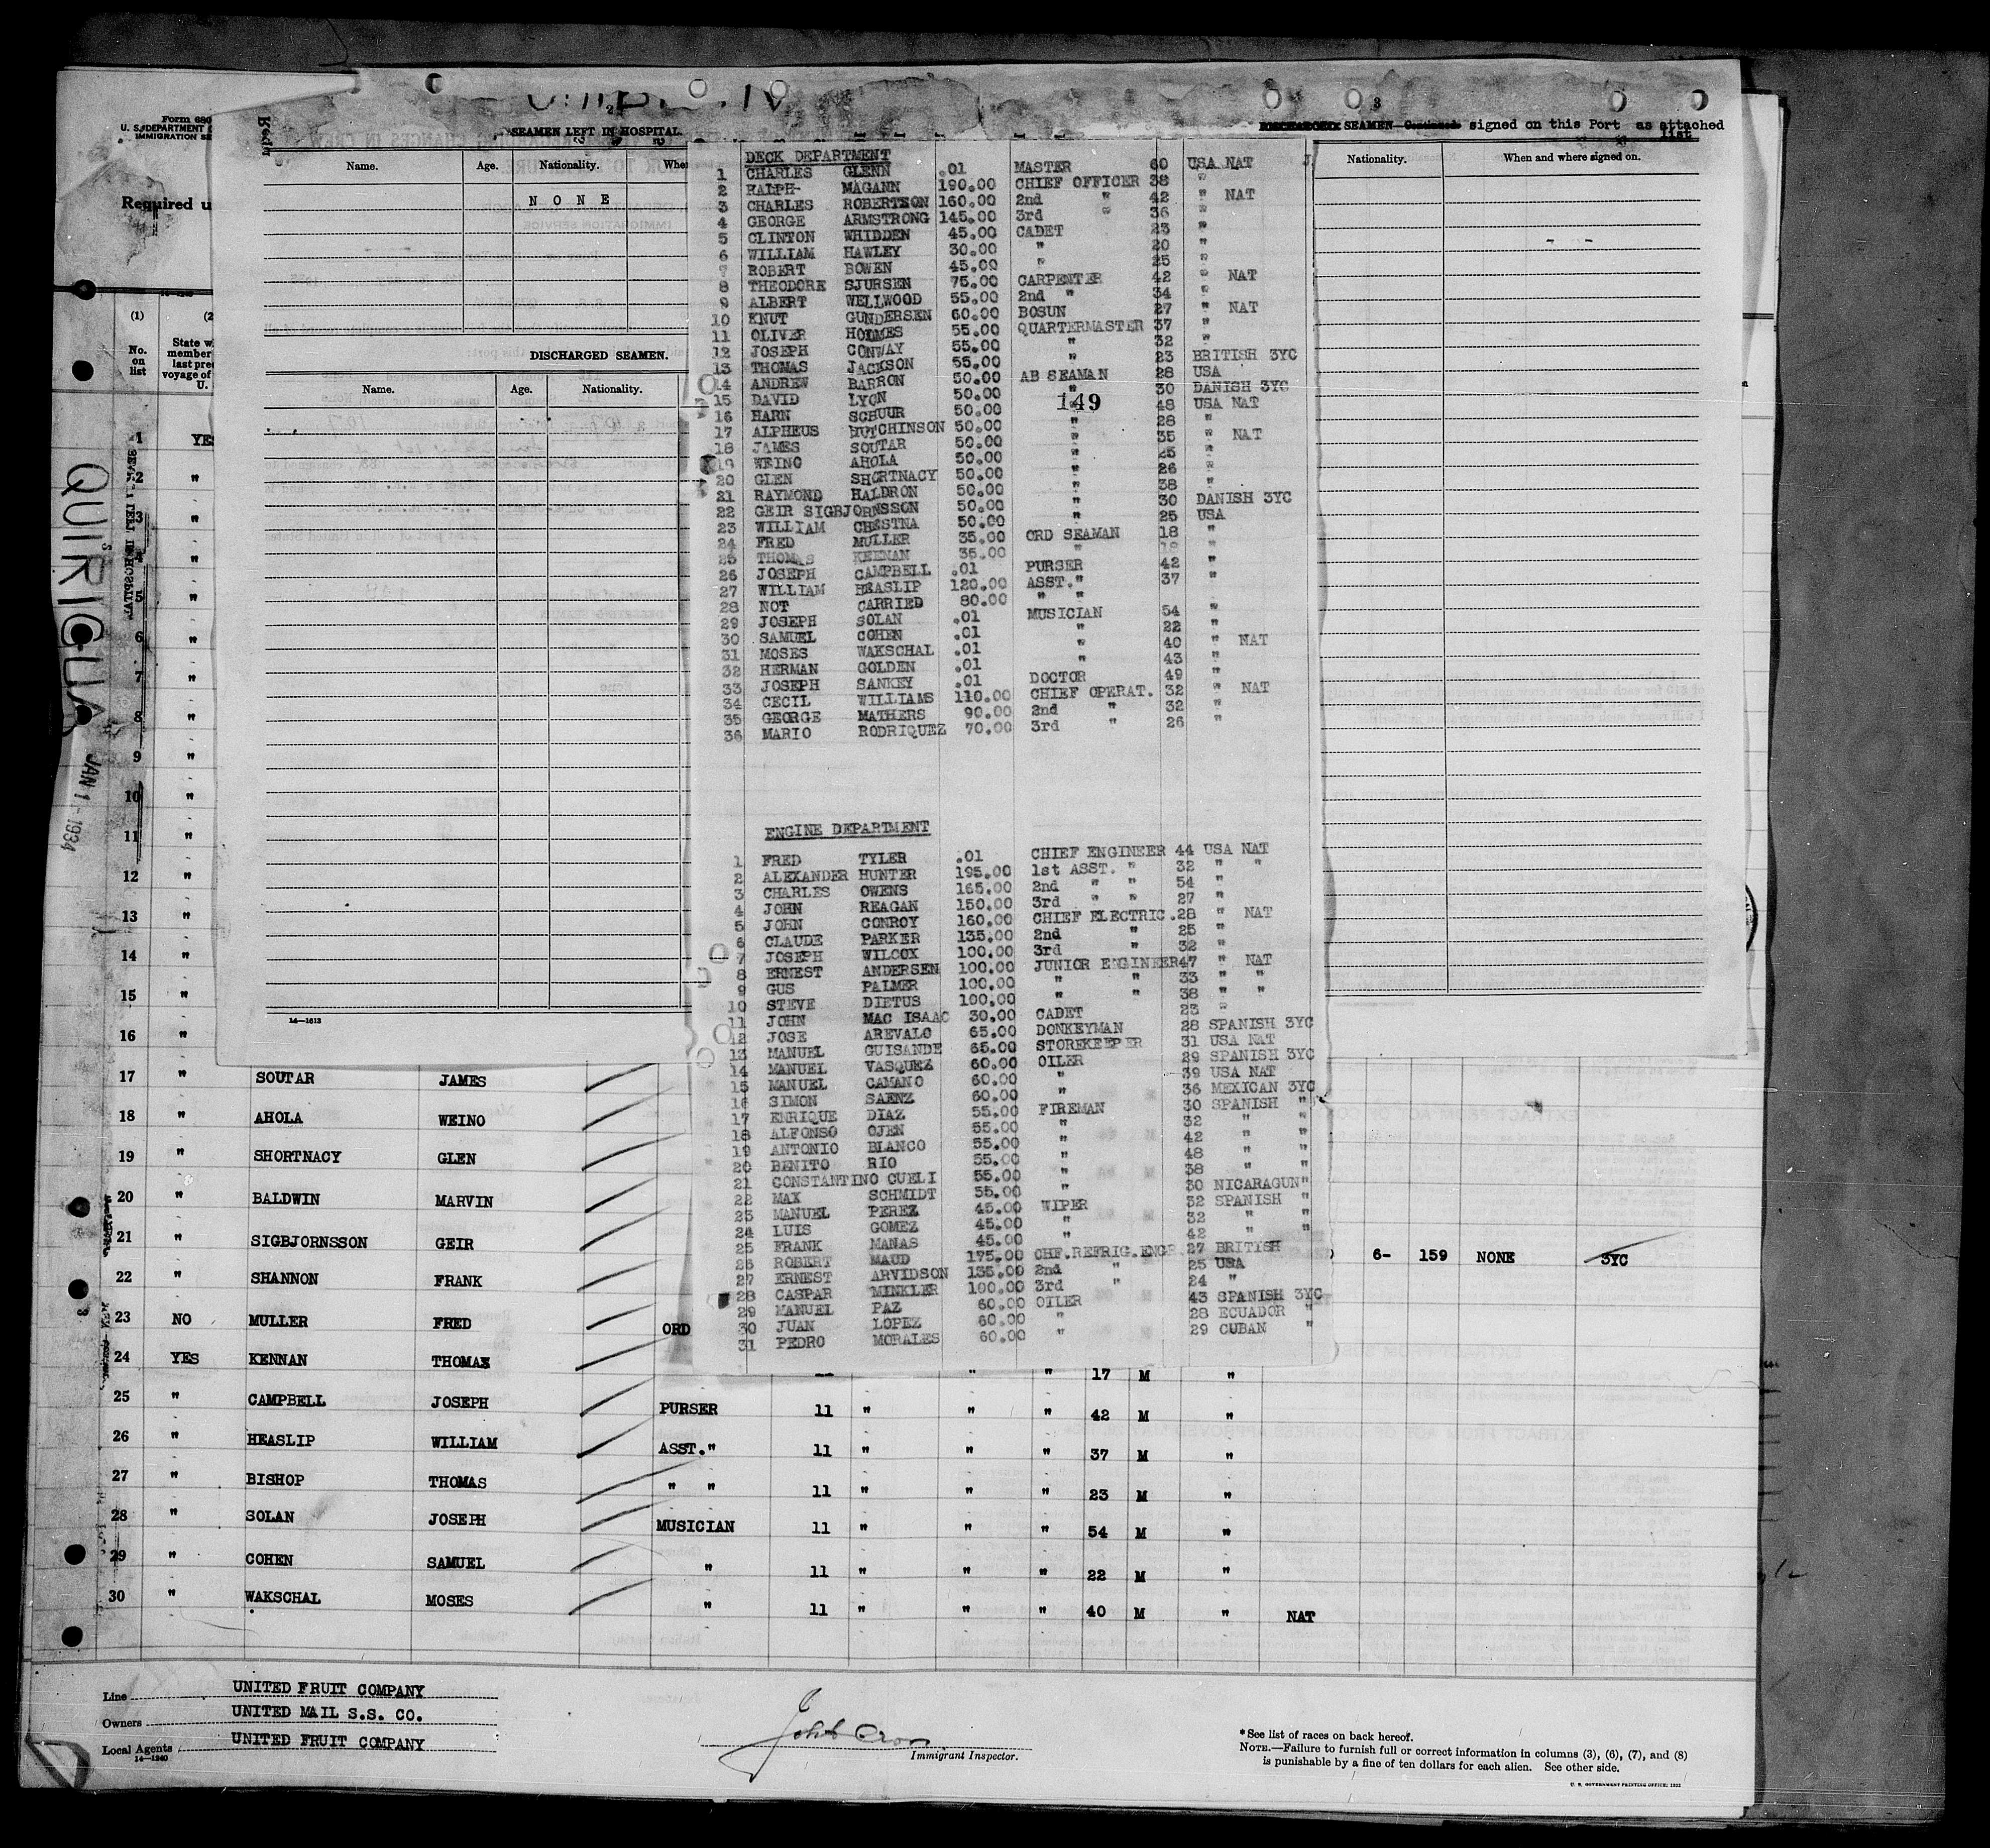 Form 680
U. S. DEPARTMENT
IMMIGRATION SE
Required u
SEAMEN LEFT IN HOSPITAL.
Name. Age. Nationality. Whe
N O N E
DISCHARGED SEAMEN.
Name. Age. Nationality.
14—1613
3
SEAMEN—Continued signed on this Port as attached
list
Nationality. When and where signed on.
- -
DECK DEPARTMENT
1 CHARLES GLENN .01 MASTER 60 USA NAT
2 RALPH MAGANN 190.00 CHIEF OFFICER 38 "
3 CHARLES ROBERTSON 160.00 2nd " 42 " NAT
4 GEORGE ARMSTRONG 145.00 3rd " 36 "
5 CLINTON WHIDDEN 45.00 CADET 23 "
6 WILLIAM HAWLEY 30.00 " 20 "
7 ROBERT BOWEN 45.00 " 25 "
8 THEODORE SJURSEN 75.00 CARPENTER 42 " NAT
9 ALBERT WELLWOOD 55.00 2nd " 34 "
10 KNUT GUNDERSEN 60.00 BOSUN 27 " NAT
11 OLIVER HOLMES 55.00 QUARTERMASTER 37 "
12 JOSEPH CONWAY 55.00 " 32 "
13 THOMAS JACKSON 55.00 " 23 BRITISH 3YC
14 ANDREW BARRON 50.00 AB SEAMAN 28 USA
15 DAVID LYON 50.00 " 30 DANISH 3YC
16 HARN SCHUUR 50.00 " 48 USA NAT
149
17 ALPHEUS HUTCHINSON 50.00 " 28 "
18 JAMES SOUTAR 50.00 " 35 " NAT
19 WEINO AHOLA 50.00 " 25 "
20 GLEN SHORTNACY 50.00 " 26 "
21 RAYMOND HALDRON 50.00 " 38 "
22 GEIR SIGBJORNSSON 50.00 " 30 DANISH 3YC
23 WILLIAM CHESTNA 50.00 " 25 USA
24 FRED MULLER 35.00 ORD SEAMAN 18 "
25 THOMAS KEENAN 35.00 " 18 "
26 JOSEPH CAMPBELL .01 PURSER 42 "
27 WILLIAM HEASLIP 120.00 ASST." 37 "
28 NOT CARRIED 80.00 " "
29 JOSEPH SOLAN .01 MUSICIAN 54 "
30 SAMUEL COHEN .01 " 22 "
31 MOSES WAKSCHAL .01 " 40 " NAT
32 HERMAN GOLDEN .01 " 43 "
33 JOSEPH SANKEY .01 DOCTOR 49 "
34 CECIL WILLIAMS 110.00 CHIEF OPERAT. 32 " NAT
35 GEORGE MATHERS 90.00 2nd " 32 "
36 MARIO RODRIQUEZ 70.00 3rd " 26 "
ENGINE DEPARTMENT
1 FRED TYLER .01 CHIEF ENGINEER 44 USA NAT
2 ALEXANDER HUNTER 195.00 1st ASST. " 32 " "
3 CHARLES OWENS 165.00 2nd " " 54 "
4 JOHN REAGAN 150.00 3rd " " 27 "
5 JOHN CONROY 160.00 CHIEF ELECTRIC. 28 " NAT
6 CLAUDE PARKER 135.00 2nd " 25 "
7 JOSEPH WILCOX 100.00 3rd " 32 "
8 ERNEST ANDERSEN 100.00 JUNIOR ENGINEER 47 " NAT
9 GUS PALMER 100.00 " " 33 " "
10 STEVE DIETUS 100.00 " " 38 " "
11 JOHN MAC ISAAC 30.00 CADET 23 "
12 JOSE AREVALO 65.00 DONKEYMAN 28 SPANISH 3YC
13 MANUEL GUISANDE 65.00 STOREKEEPER 31 USA NAT
14 MANUEL VASQUEZ 60.00 OILER 29 SPANISH 3YC
15 MANUEL CAMANO 60.00 " 39 USA NAT
16 SIMON SAENZ 60.00 " 36 MEXICAN 3YC
17 ENRIQUE DIAZ 55.00 FIREMAN 30 SPANISH "
18 ALFONSO OJEN 55.00 " 32 " "
19 ANTONIO BLANCO 55.00 " 42 " "
20 BENITO RIO 55.00 " 48 " "
21 CONSTANTINO CUELI 55.00 " 38 " "
22 MAX SCHMIDT 55.00 " 30 NICARAGUN"
23 MANUEL PEREZ 45.00 WIPER 32 SPANISH "
24 LUIS GOMEZ 45.00 " 32 " "
25 FRANK MANAS 45.00 " 42 " "
26 ROBERT MAUD 175.00 CHF.REFRIG.ENGR 27 BRITISH
27 ERNEST ARVIDSON 135.00 2nd " 25 USA
28 CASPAR MINKLER 100.00 3rd " 24 "
29 MANUEL PAZ 60.00 OILER 43 SPANISH 3YC
30 JUAN LOPEZ 60.00 " 28 ECUADOR "
31 PEDRO MORALES 60.00 " 29 CUBAN "
QUIRIGUA
JAN 1 - 1934
(1) (2
No. on list
State w
member
last pre
voyage of
U.
1 YES
2 "
3 "
4 "
5 "
6 "
7 "
8 "
9 "
10 "
11 "
12 "
13 "
14 "
15 "
16 "
17 " SOUTAR JAMES
18 " AHOLA WEINO
19 " SHORTNACY GLEN
20 " BALDWIN MARVIN
21 " SIGBJORNSSON GEIR 6- 159 NONE 3YC
22 " SHANNON FRANK
23 NO MULLER FRED ORD
24 YES KENNAN THOMAS " " 17 M "
25 " CAMPBELL JOSEPH PURSER 11 " " " 42 M "
26 " HEASLIP WILLIAM ASST." 11 " " " 37 M "
27 " BISHOP THOMAS " " 11 " " " 23 M "
28 " SOLAN JOSEPH MUSICIAN 11 " " " 54 M "
29 " COHEN SAMUEL " 11 " " " 22 M "
30 " WAKSCHAL MOSES " 11 " " " 40 M " NAT
Line UNITED FRUIT COMPANY
Owners UNITED MAIL S.S. CO.
Local Agents UNITED FRUIT COMPANY
14—1240
John
Immigrant Inspector.
*See list of races on back hereof.
NOTE.—Failure to furnish full or correct information in columns (3), (6), (7), and (8)
is punishable by a fine of ten dollars for each alien. See other side.
U. S. GOVERNMENT PRINTING OFFICE: 1932